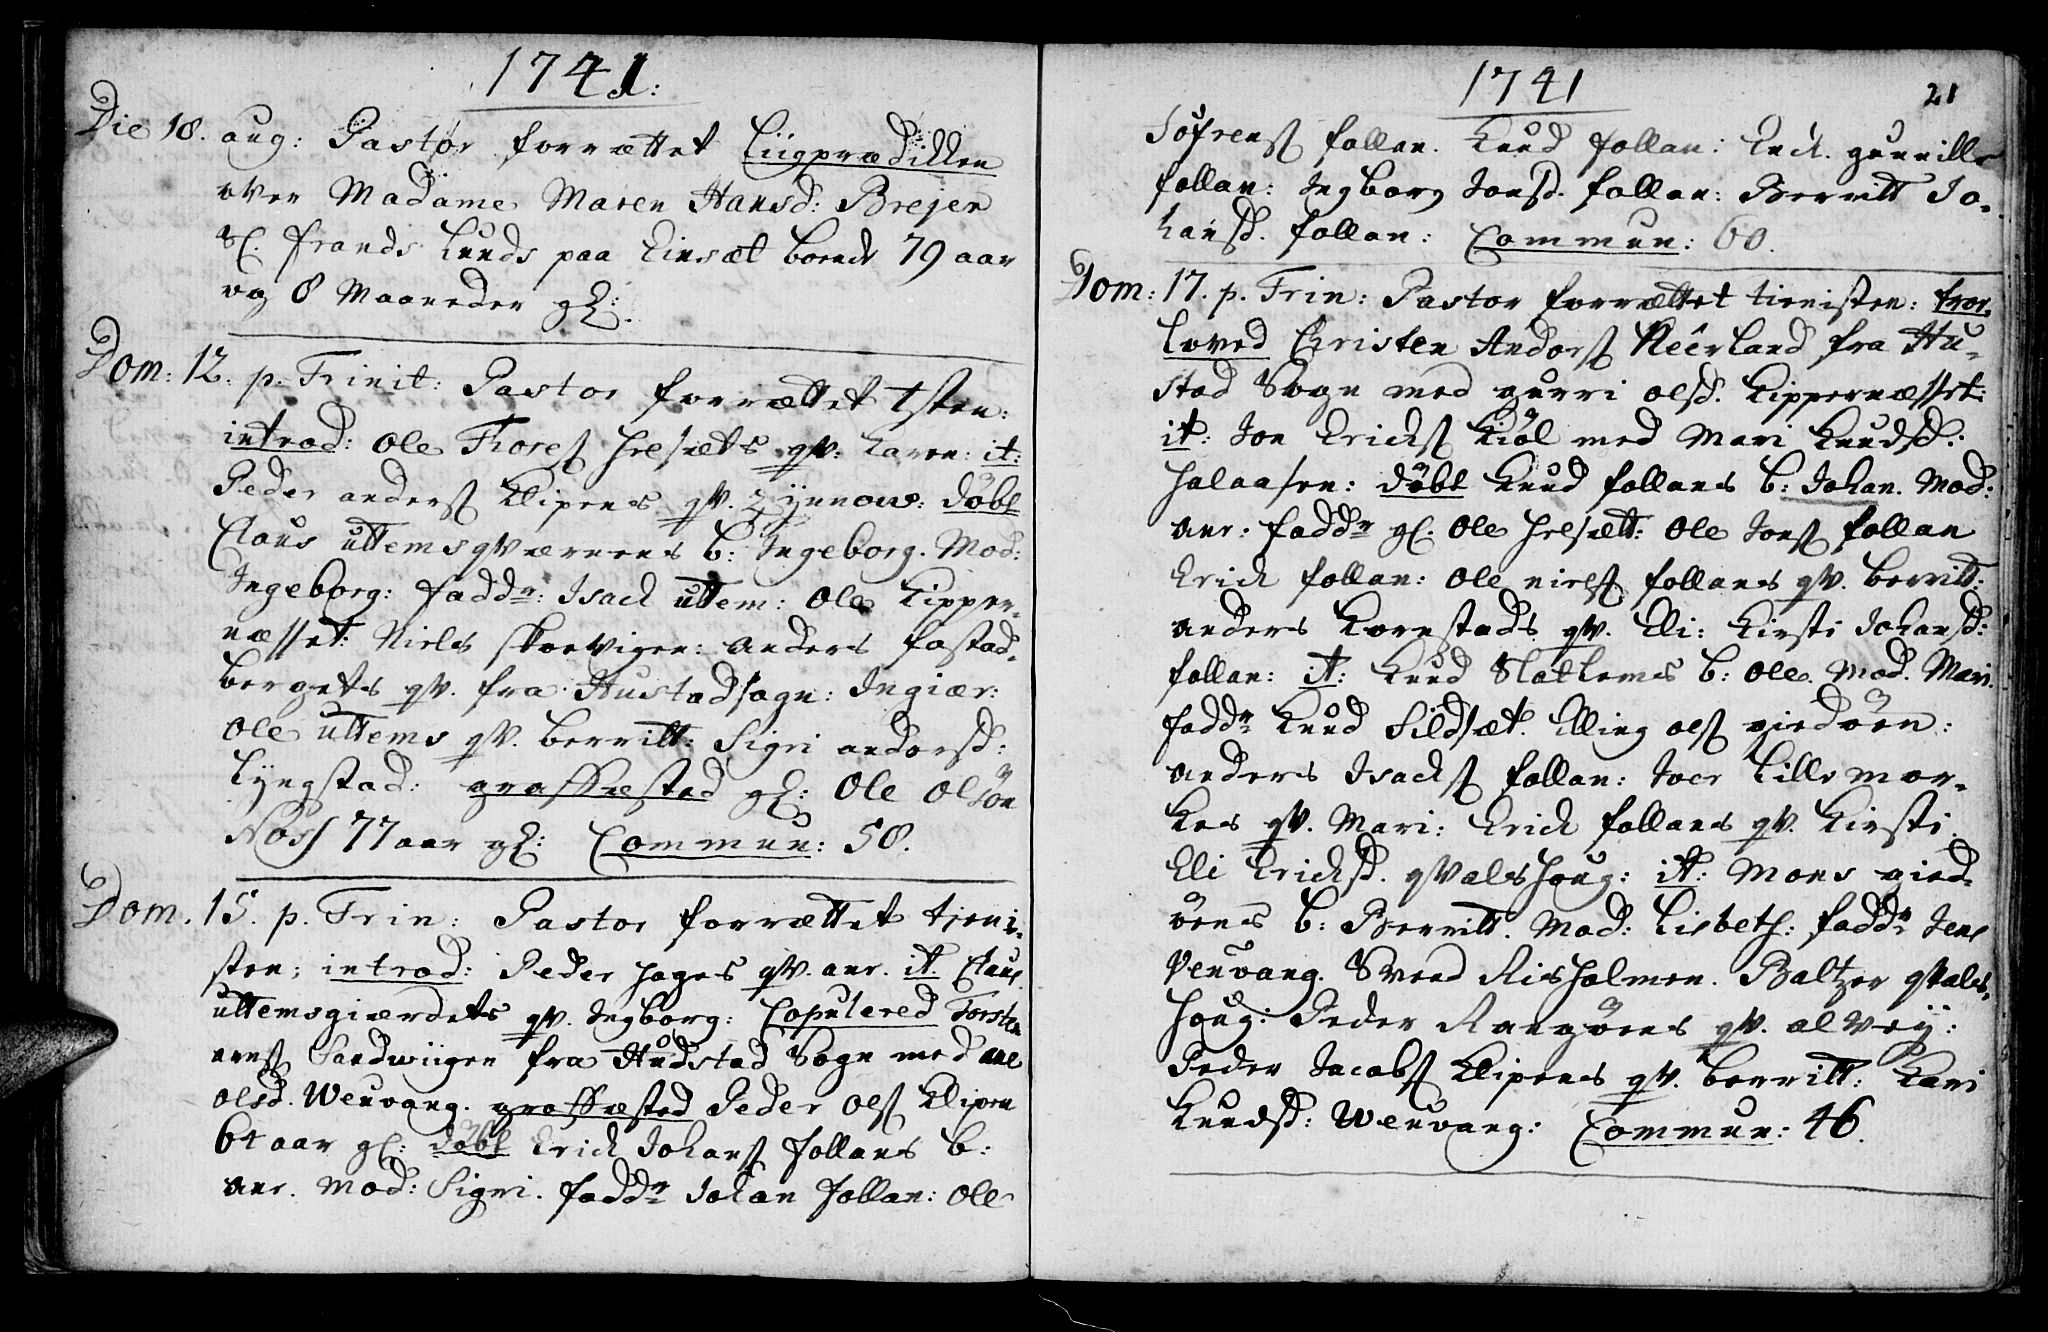 1741.
Die 18. aug: Pastor forrættet Liigprædikken
over Madame Maren Hansd: Brejer
Sl. Frands Lunds paa Einsæt boend 79 aar
og 8 Maaneder gl:
Dom: 12. p. Trinit: Pastor forrættet tjsten:
introd: Ole Thores Helsæts qv: Karen: it:
Peder anders Klipens qv. Zynnow: döbt
Claus uttemsqværnens b: Ingeborg. Mod:
Ingeborg: fadd: Isach uttem: Ole Kipper-
næsset: Niels skorvigen: anders fastad-
bergets qv. fra Hustadsogn: Ingiær:
Ole uttems qv. berritt: Sigri andorsd:
Lyngstad: graffæsted gl: Ole Olsön
Nöss 77 aar gl: Commun: 58.
Dom. 15. p. Trin: Pastor forrættet tjeni-
sten: introd: Peder hages qv. anr. it Claus
uttemsgiærdets qv. Ingborg: Copulered Torsten
arns Sandwiigen fra Hudstad Sogn med ane
olsd. Wenvang. graffæsted Peder ols Klipen
61 aar gl: döbt Erich Johans follans b:
anr. Mod: Sigri. fadd Johan follan: Ole
1741
21
Söfrens follan. Knud follan: Enck. gunnille
follan: Ingborg Jonsd. follan: Berritt Jo-
hansd. follan: Commun: 60.
Dom: 17. p. Trin: Pastor forrættet tienisten: tror-
loved Christen Andors Neerland fra Hu-
stad Sogn med gurri olsd. Kippernæsset:
it: Jon Erichs Kiöl med Mari Knudsd:
halaasen: döbt Knud follans b: Johan. Mod:
anr: fadd gl. Ole helsætt: Ole Jons follan
Erich follan: Ole niels follans qv. berritt:
anders Kornstads qv. Eli: Kirsti Johansd:
follan: it: Knud Slatlems b: Ole. Mod. Mari.
fadd Knud Sildsæt. Elling ols giedöen:
anders Isachs follan: Joer Lillemor-
kes qv. Mari: Erich follans qv. Kirsti.
Eli Erichsd. qvalshoug: it: Mons gied-
öens b: Berritt. Mod: Lisbeth: fadd Jens
Venvang. Svend Risholmen. Baltzer qvals-
houg: Peder Rangöens qv. alvey:
Peder Jacobs Klipens qv. berritt: Kari
Knudsd: Wenvang: Commun: 46.